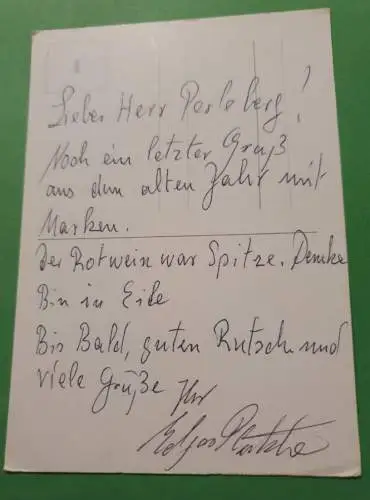 Lieber Herr Perleberg!
Noch ein letzter Gruß
aus dem alten Jahr mit
Marken.
Der Rotwein war Spitze. Danke
Bin in Eile
Bis Bald, guten Rutsch und
viele Grüße Ihr
Edgar